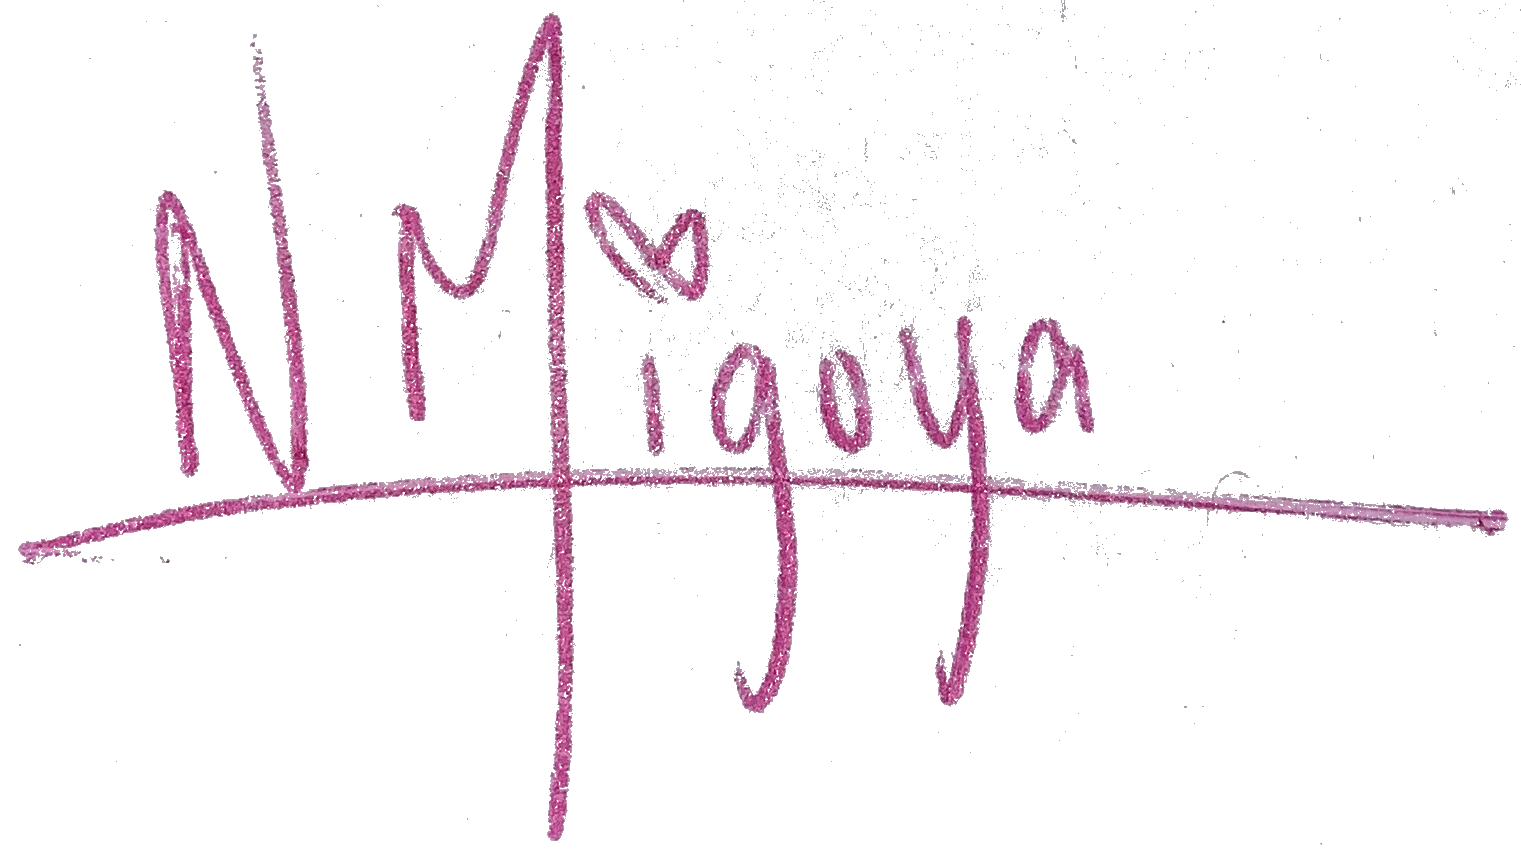 N Migoya